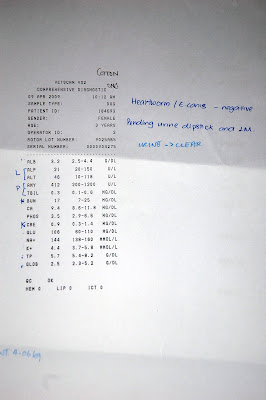 VETSCAN VS2
COMPREHENSIVE DIAGNOSTIC
09 APR 2009 10:12 AM
SAMPLE TYPE: DOG
PATIENT ID:
GENDER: FEMALE
AGE: YEARS
OPERATOR ID:
ROTOR LOT NUMBER:
SERIAL NUMBER:
Heartworm / E canis - negative
Pending urine dipstick and
URINE → CLEAR
ALB 3.2 2.5-4.4 G/DL
L ALP 31 20-150 U/L
ALT 46 10-118 U/L
P AMY 412 200-1200 U/L
TBIL 0.3 0.1-0.6 MG/DL
K BUN 17 7-25 MG/DL
CA 9.4 8.6-11.8 MG/DL
PHOS 3.5 2.9-6.6 MG/DL
CRE 0.9 0.3-1.4 MG/DL
GLU 108 60-110 MG/DL
NA+ 144 138-160 MMOL/L
K+ 4.4 3.7-5.8 MMOL/L
TP 5.7 5.4-8.2 G/DL
GLOB 2.5 2.3-5.2 G/DL
QC OK
HEM 0 LIP 0 ICT 0